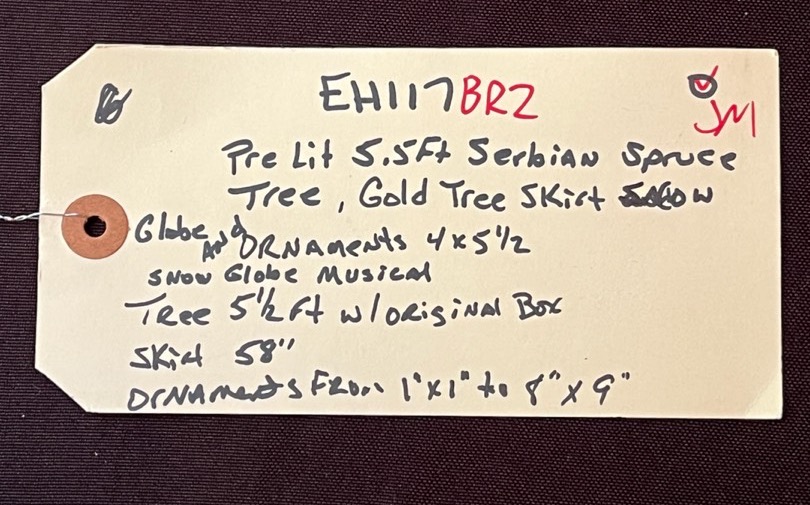 EH117BRZ
JM
Pre Lit 5.5Ft Serbian Spruce
Tree, Gold Tree Skirt Snow
Globe And Ornaments 4x5½
Snow Globe Musical
Tree 5½ Ft w/original Box
Skirt 58"
Ornaments From 1"x1" to 8" x 9"